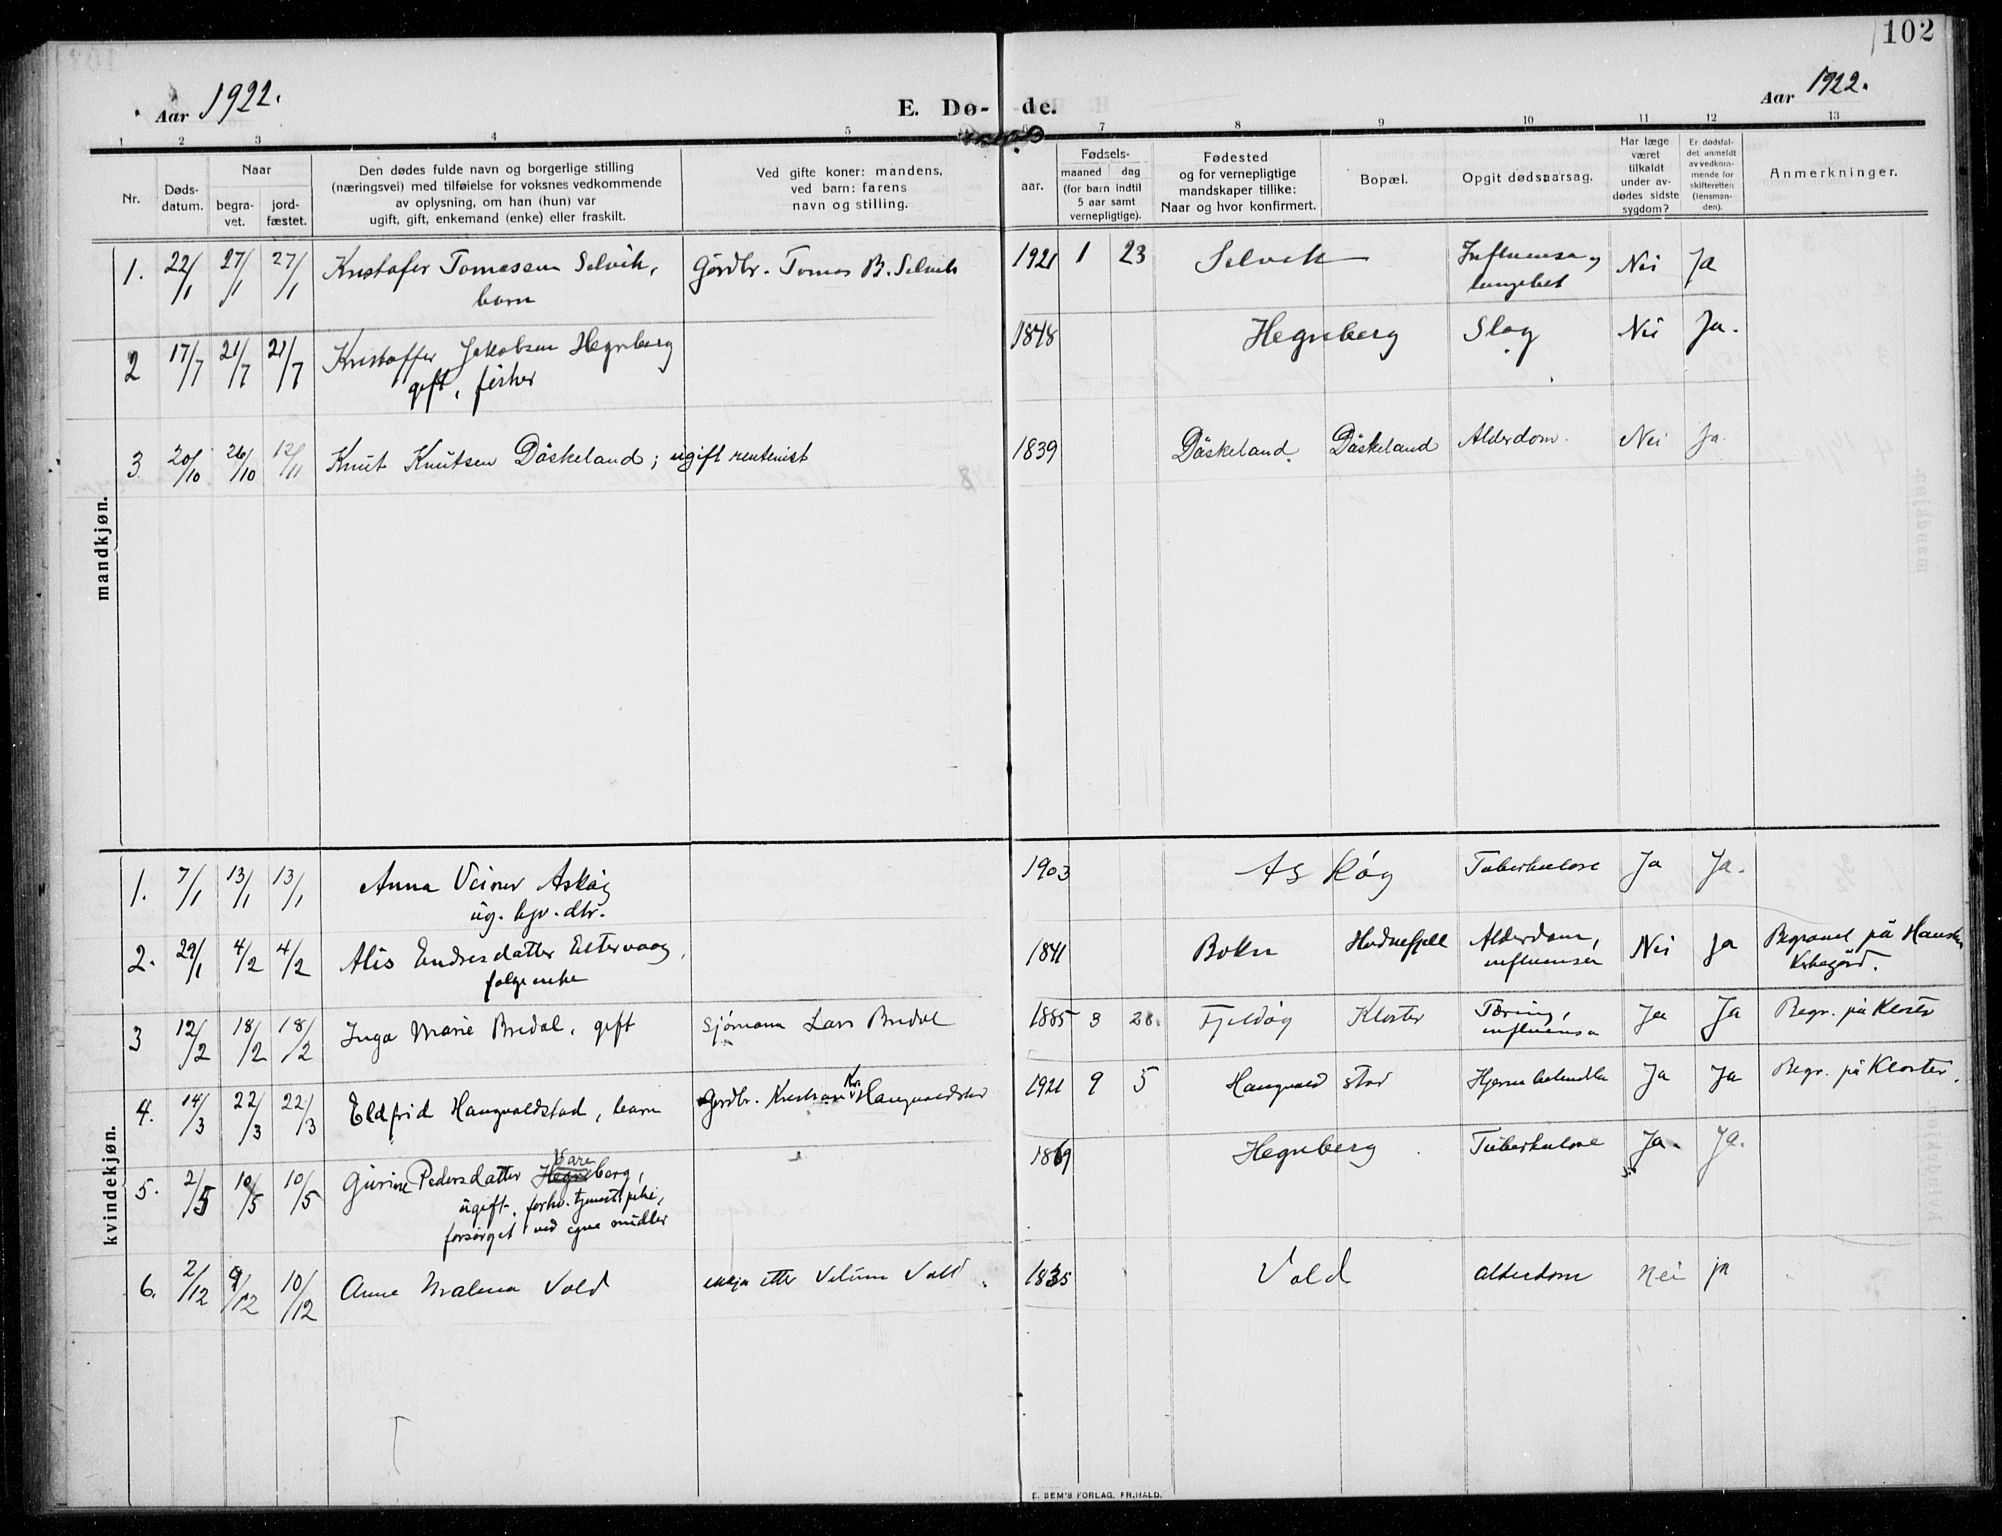 102
Aar 1922.
E. Dø- de.
Aar 1922.
1 2 3 4 5 6 7 8 9 10 11 12 13
Nr.
Døds-
datum.
Naar
begra-
vet.
jord-
fæstet.
Den dødes fulde navn og borgerlige stilling
(næringsvei) med tilføielse for voksnes vedkommende
av oplysning, om han (hun) var
ugift, gift, enkemand (enke) eller fraskilt.
Ved gifte koner: mandens,
ved barn: farens
navn og stilling.
Fødsels-
aar.
maaned dag
(for barn indtil
5 aar samt
vernepligtige).
Fødested
og for vernepligtige
mandskaper tillike:
Naar og hvor konfirmert.
Bopæl.
Opgit dødsaarsag.
Har læge
været
tilkaldt
under av-
dødes sidste
sygdom?
Er dødsfal-
det anmeldt
av vedkom-
mende for
skifteretten
(lensman-
den).
Anmerkninger.
mandkjøn.
1. 22/1 27/1 27/1 Kristofer Tomassen Selvik, Gårdbr. Tomas B. Selvik 1921 1 23 Selvik Influensa og Nei Ja
barn lungebet
2 17/7 21/7 21/7 Kristoffer Jakobsen Hegreberg 1848 Hegreberg Slag Nei Ja.
gift, fisker
3 20/10 26/10 12/11 Knut Knutsen Dåskeland; ugift rentenist 1839 Dåskeland. Dåskeland Alderdom. Nei Ja.
kvindekjøn.
1. 7/1 13/1 13/1 Anna Askøy 1903 Askøy Tuberkulose Ja Ja.
ug. gv. dtr.
2. 29/1 4/2 4/2 Alis Endresdatter Eltervaag, 1841 Bokn Hodnefjell Alderdom, Nei Ja Begravet på Hausken
folgeenke influensa Kirkegård.
3 12/2 18/2 18/2 Inga Marie Bredal, gift Sjømann Lars Bredal 1885 3 28. Fjeldøy Kloster Tæring, Ja Ja Begr. på Kloster
influensa
4. 14/3 22/3 22/3 Eldfrid Haugvaldstad, barn Gårdbr. Kristian Kr. Haugvaldstad 1921 9 5 Haugvaldstad Ja Ja Begr. på Kloster.
5. 2/5 10/5 10/5 Gurine Pedersdatter Vareberg, 1869 Hegreberg Tuberkulose Ja. Ja.
ugift, forhv. tjenestepike,
forsørget ved egne midler
6. 2/12 9/12 10/12 Anne Malena Vold enkja etter Vold. 1835 Vold alderdom nei ja
E. SEM'S FORLAG, FR.HALD.